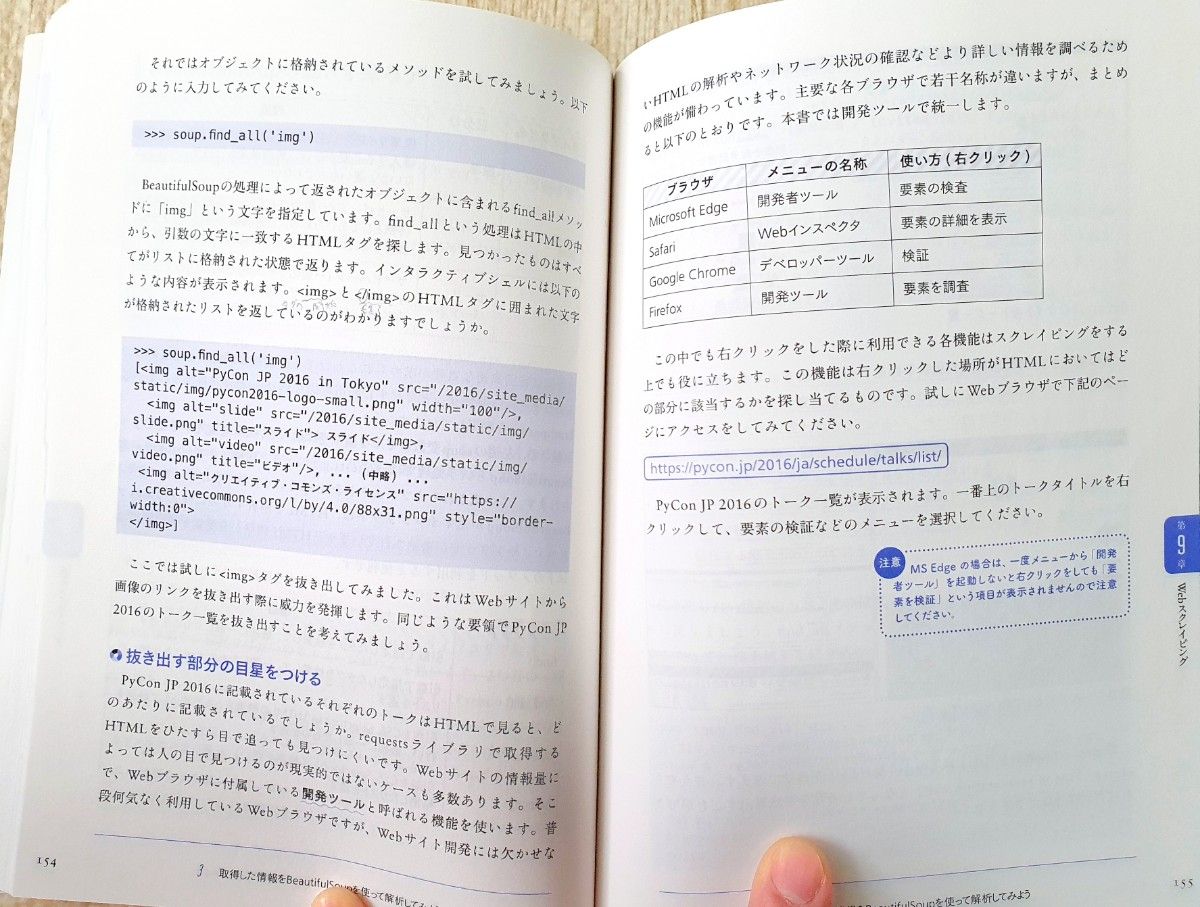 それではオブジェクトに格納されているメソッドを試してみましょう。以下
のように入力してみてください。
>>> soup.find_all('img')
BeautifulSoupの処理によって返されたオブジェクトに含まれるfind_allメソッ
ドに「img」という文字を指定しています。find_allという処理はHTMLの中
から、引数の文字に一致するHTMLタグを探します。見つかったものはすべ
てがリストに格納された状態で返ります。インタラクティブシェルには以下の
ような内容が表示されます。<img>と</img>のHTMLタグに囲まれた文字
が格納されたリストを返しているのがわかりますでしょうか。
>>> soup.find_all('img')
[<img alt="PyCon JP 2016 in Tokyo" src="/2016/site_media/
static/img/pycon2016-logo-small.png" width="100"/>,
<img alt="slide" src="/2016/site_media/static/img/
slide.png" title="スライド"> スライド</img>,
<img alt="video" src="/2016/site_media/static/img/
video.png" title="ビデオ"/>, ... (中略) ...
<img alt="クリエイティブ・コモンズ・ライセンス" src="https://
i.creativecommons.org/l/by/4.0/88x31.png" style="border-
width:0">
</img>]
ここでは試しに<img>タグを抜き出してみました。これはWebサイトから
画像のリンクを抜き出す際に威力を発揮します。同じような要領でPyCon JP
2016のトーク一覧を抜き出すことを考えてみましょう。
抜き出す部分の目星をつける
PyCon JP 2016に記載されているそれぞれのトークはHTMLで見ると、ど
のあたりに記載されているでしょうか。requestsライブラリで取得する
HTMLをひたすら目で追っても見つけにくいです。Webサイトの情報量に
よっては人の目で見つけるのが現実的ではないケースも多数あります。そこ
で、Webブラウザに付属している開発ツールと呼ばれる機能を使います。普
段何気なく利用しているWebブラウザですが、Webサイト開発には欠かせな
154
3 取得した情報をBeautifulSoupを使って解析してみよ
いHTMLの解析やネットワーク状況の確認などより詳しい情報を調べるため
の機能が備わっています。主要な各ブラウザで若干名称が違いますが、まとめ
ると以下のとおりです。本書では開発ツールで統一します。
ブラウザ メニューの名称 使い方(右クリック)
Microsoft Edge 開発者ツール 要素の検査
Safari Webインスペクタ 要素の詳細を表示
Google Chrome デベロッパーツール 検証
Firefox 開発ツール 要素を調査
この中でも右クリックをした際に利用できる各機能はスクレイピングをする
上でも役に立ちます。この機能は右クリックした場所がHTMLにおいてはど
の部分に該当するかを探し当てるものです。試しにWebブラウザで下記のペー
ジにアクセスをしてみてください。
https://pycon.jp/2016/ja/schedule/talks/list/
PyCon JP 2016のトーク一覧が表示されます。一番上のトークタイトルを右
クリックして、要素の検証などのメニューを選択してください。
注意 MS Edge の場合は、一度メニューから「開発
者ツール」を起動しないと右クリックをしても「要
素を検証」という項目が表示されませんので注意
してください。
第9章
Webスクレイピング
をBeautifulSoupを使って解析してみよう
155